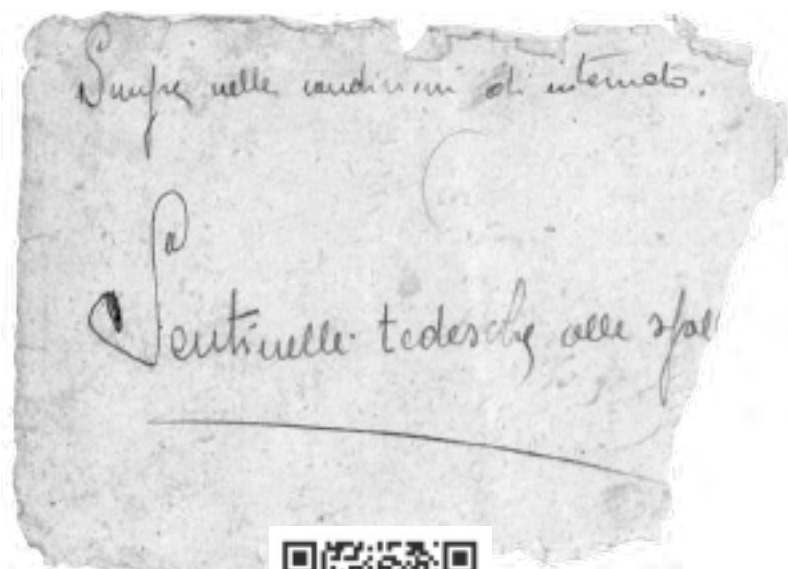 Sempre nelle condizioni di internato.
Sentinelle tedesche alle spal